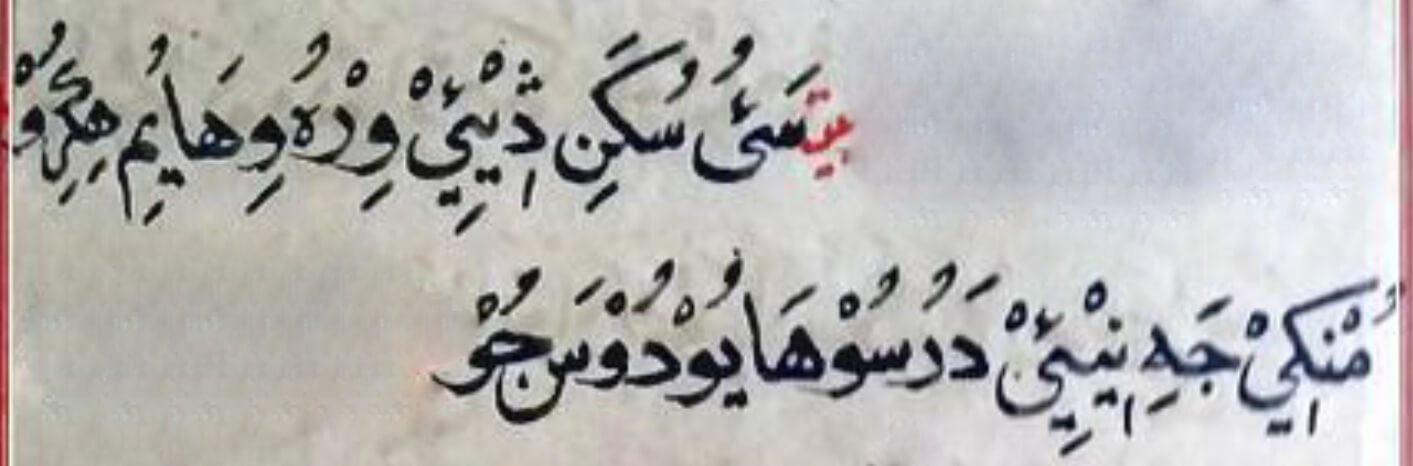 بيت سَئُ سُکَنِ ڎِيْئِيْ وِرْهُ وِهَايُمِ هِکِرُوْ
مُنْکِيْ جَهِ نِيْئِيْ دَرُ سُوْهَايُوْ دُوْسَ جُوْ